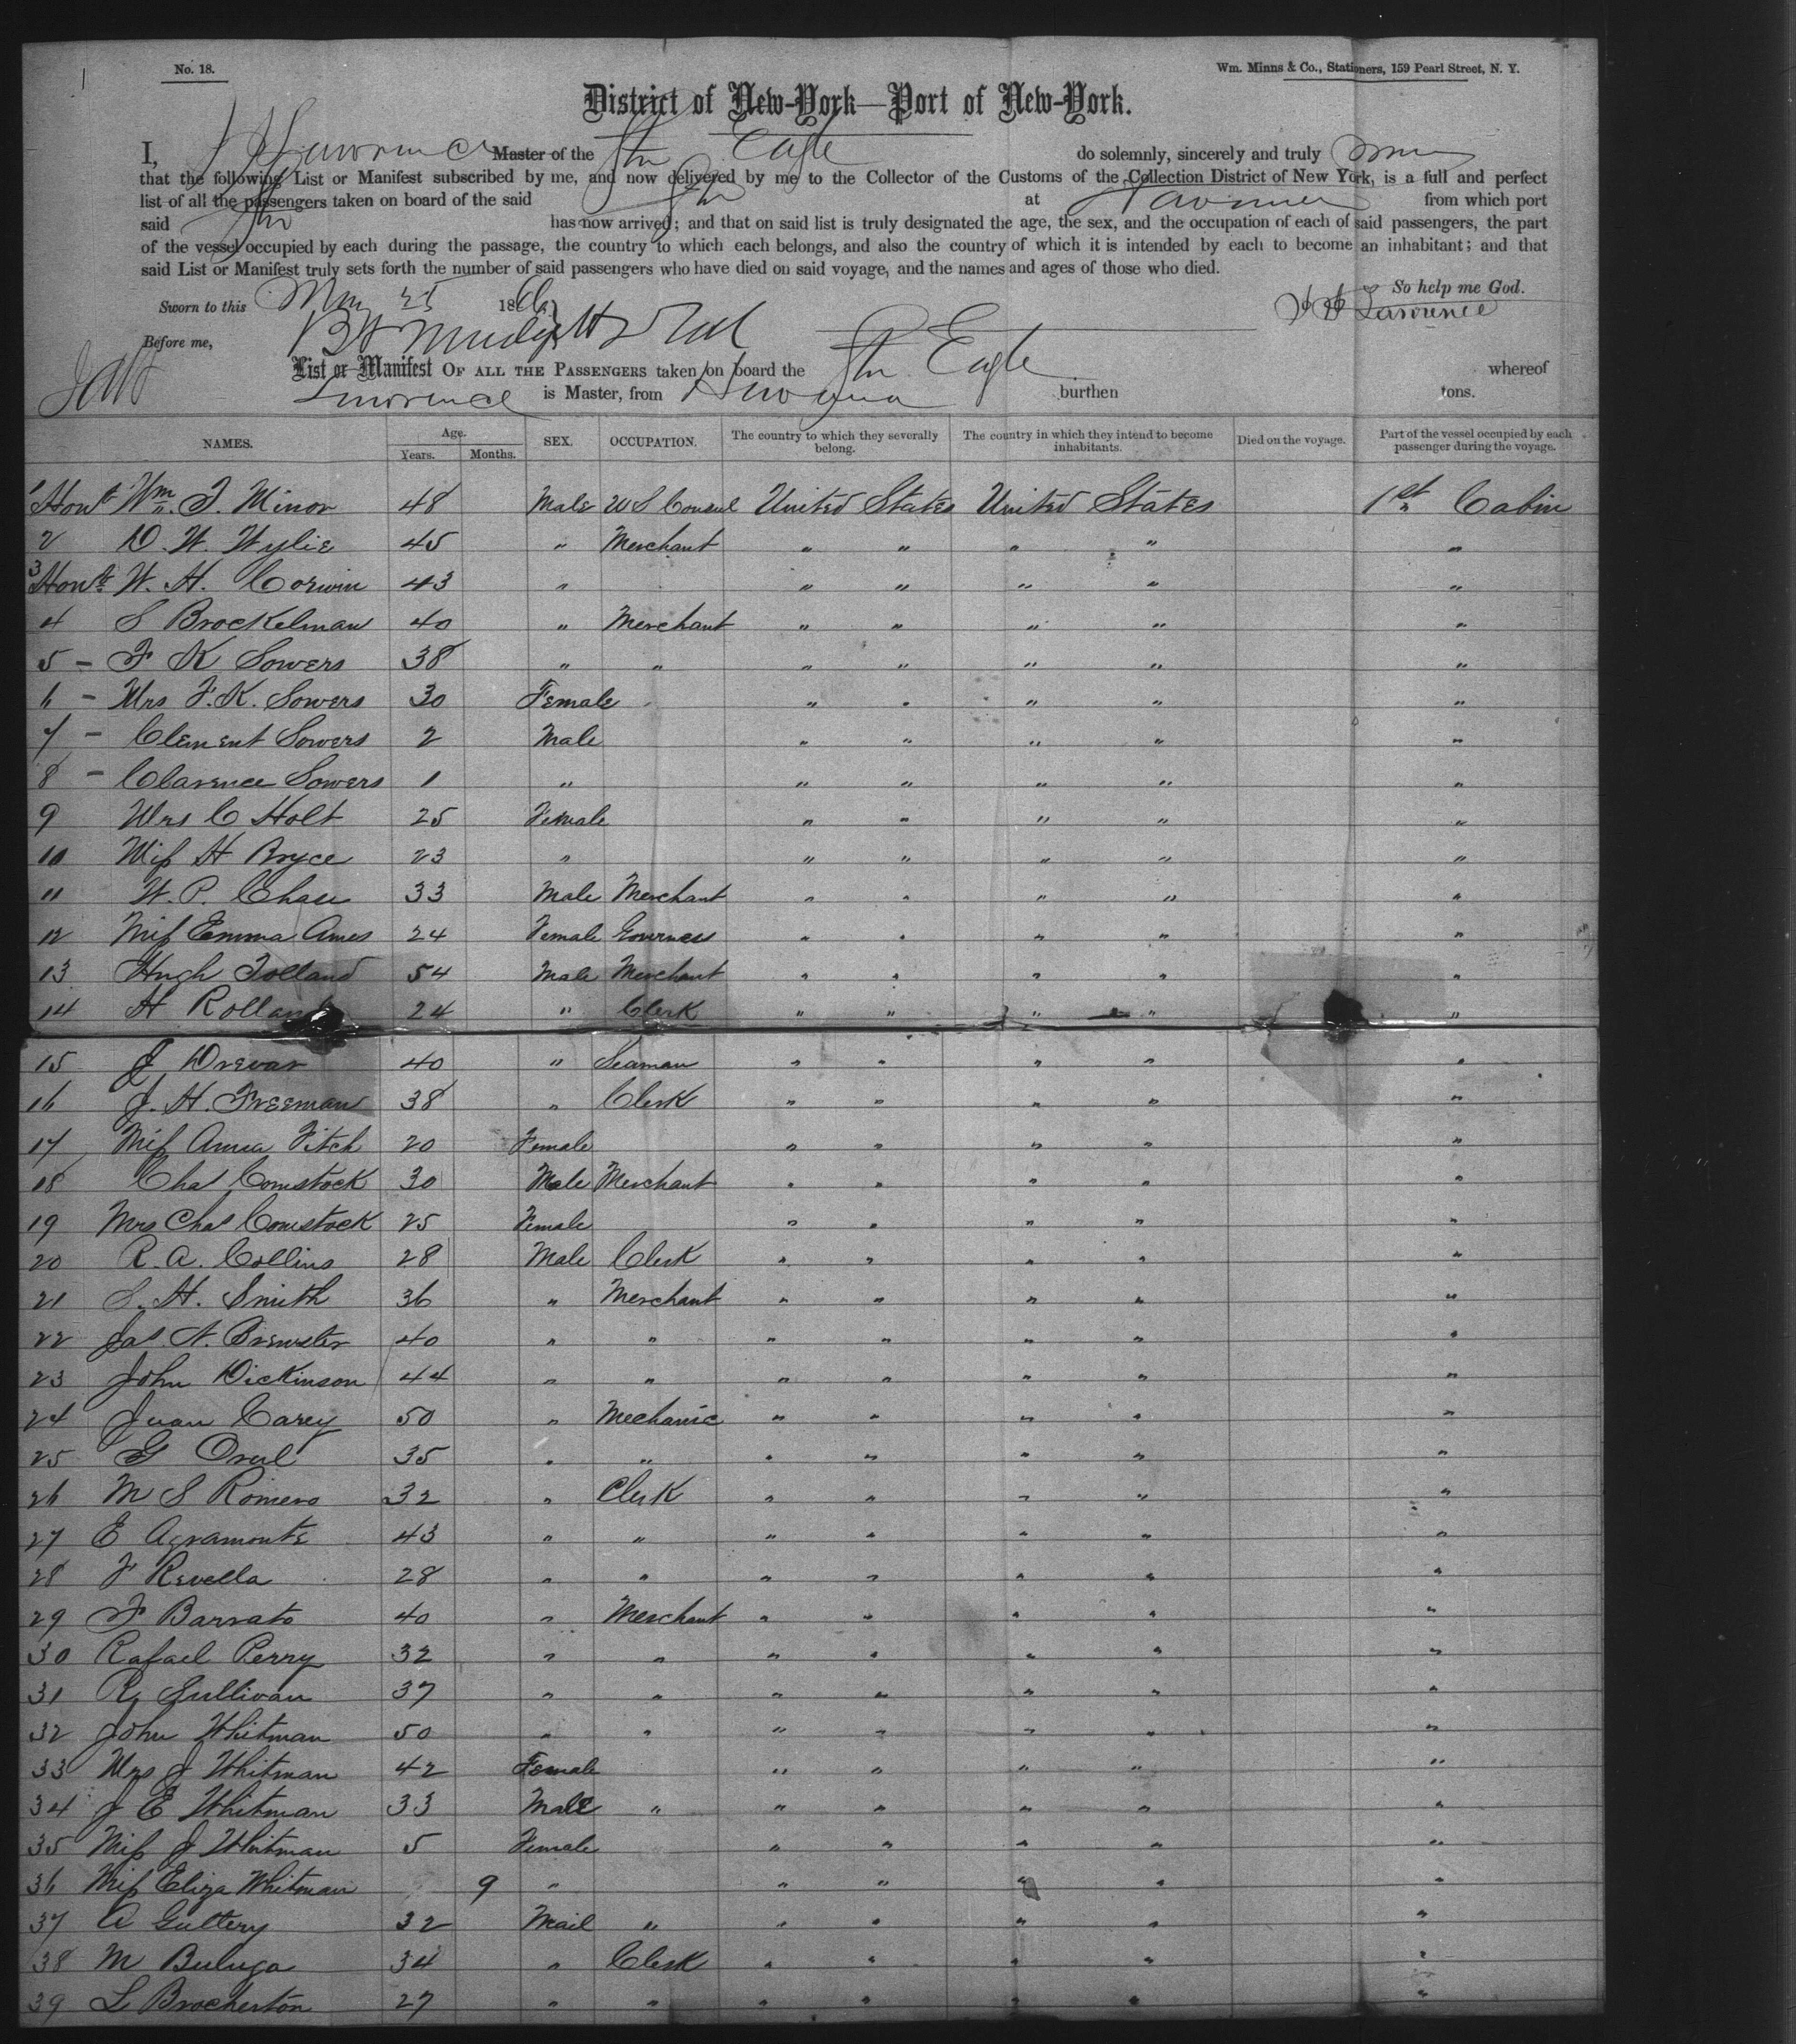 No. 18.
Wm. Minns & Co., Stationers, 159 Pearl Street, N. Y.
District of New-York—Port of New-York.
I, Lawrence Master of the Str Eagle do solemnly, sincerely and truly
that the following List or Manifest subscribed by me, and now delivered by me to the Collector of the Customs of the Collection District of New York, is a full and perfect
list of all the passengers taken on board of the said Str at Havana from which port
said Str has now arrived; and that on said list is truly designated the age, the sex, and the occupation of each of said passengers, the part
of the vessel occupied by each during the passage, the country to which each belongs, and also the country of which it is intended by each to become an inhabitant; and that
said List or Manifest truly sets forth the number of said passengers who have died on said voyage, and the names and ages of those who died.
So help me God.
Sworn to this May 25 186
Lawrence
Before me,
List or Manifest OF ALL THE PASSENGERS taken on board the Str Eagle whereof
Lawrence is Master, from Havana burthen tons.
NAMES. Age. Years. Months. SEX. OCCUPATION. The country to which they severally belong. The country in which they intend to become inhabitants. Died on the voyage. Part of the vessel occupied by each passenger during the voyage.
1 Honl Wm. T. Minor 48 Male U S Consul United States United States 1st Cabin
2 D. W. Wylie 45 " Merchant " " " " "
3 Honl W. H. Corwin 43 " " " " " "
4 S Brockelman 40 " Merchant " " " " "
5 - F K Sowers 38 " " " " " " "
6 - Mrs F. K. Sowers 30 Female " " " " "
7 - Clement Sowers 2 Male " " " " "
8 - Clarence Sowers 1 " " " " " "
9 Mrs C Holt 25 Female " " " " "
10 Miss H Bryce 23 " " " " " "
11 W. P. Chase 33 Male Merchant " " " " "
12 Miss Emma Ames 24 Female Governess " " " " "
13 Hugh Tolland 54 Male Merchant " " " " "
14 H Rolland 24 " Clerk " " " " "
15 J Drevar 40 " Seaman " " " " "
16 J. H. Freeman 38 " Clerk " " " " "
17 Miss Anna Fitch 20 Female " " " " "
18 Chas Comstock 30 Male Merchant " " " " "
19 Mrs Chas Comstock 25 Female " " " " "
20 R. A. Collins 28 Male Clerk " " " " "
21 S. H. Smith 36 " Merchant " " " " "
22 Jas. N. Brewster 40 " " " " " " "
23 John Dickinson 44 " " " " " " "
24 Juan Carey 50 " Mechanic " " " " "
25 G Orul 35 " " " " " " "
26 M S Romero 32 " Clerk " " " " "
27 E Agramonte 43 " " " " " " "
28 F Revella 28 " " " " " " "
29 F Barrato 40 " Merchant " " " " "
30 Rafael Perry 32 " " " " " " "
31 R. Sullivan 37 " " " " " " "
32 John Whitman 50 " " " " " " "
33 Mrs J Whitman 42 Female " " " " "
34 J E Whitman 33 Male " " " " " "
35 Miss J Whitman 5 Female " " " " "
36 Miss Eliza Whitman 9 " " " " " "
37 A Guttery 32 Mail " " " " " "
38 M Buluga 34 " Clerk " " " " "
39 L Brocherton 27 " " " " " " "